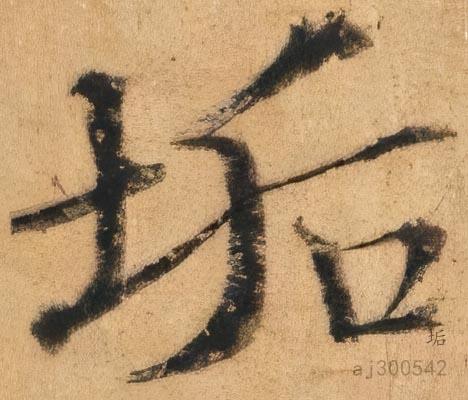 垢
垢
aj300542